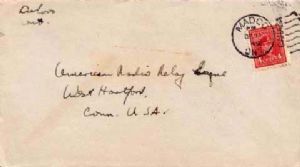 Deloro
Ont.
MADOC
American Radio Relay League
West Hartford,
Conn. U.S.A.